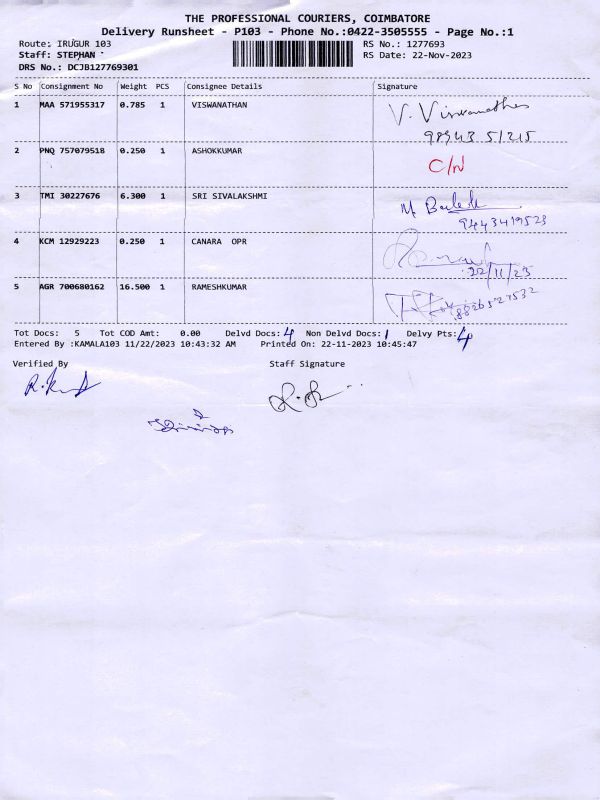 THE PROFESSIONAL COURIERS, COIMBATORE
Delivery Runsheet - P103 - Phone No.:0422-3505555 - Page No.:1
Route: IRUGUR 103 RS No.: 1277693
Staff: STEPHAN RS Date: 22-Nov-2023
DRS No.: DCJB127769301
S No Consignment No Weight PCS Consignee Details Signature
1 MAA 571955317 0.785 1 VISWANATHAN V. Viswanathan
98943 51215
2 PNQ 757079518 0.250 1 ASHOKKUMAR C/N
3 TMI 30227676 6.300 1 SRI SIVALAKSHMI M
9443419523
4 KCM 12929223 0.250 1 CANARA OPR
22/11/23
5 AGR 700680162 16.500 1 RAMESHKUMAR
Tot Docs: 5 Tot COD Amt: 0.00 Delvd Docs: 4 Non Delvd Docs: 1 Delvy Pts: 4
Entered By :KAMALA103 11/22/2023 10:43:32 AM Printed On: 22-11-2023 10:45:47
Verified By Staff Signature